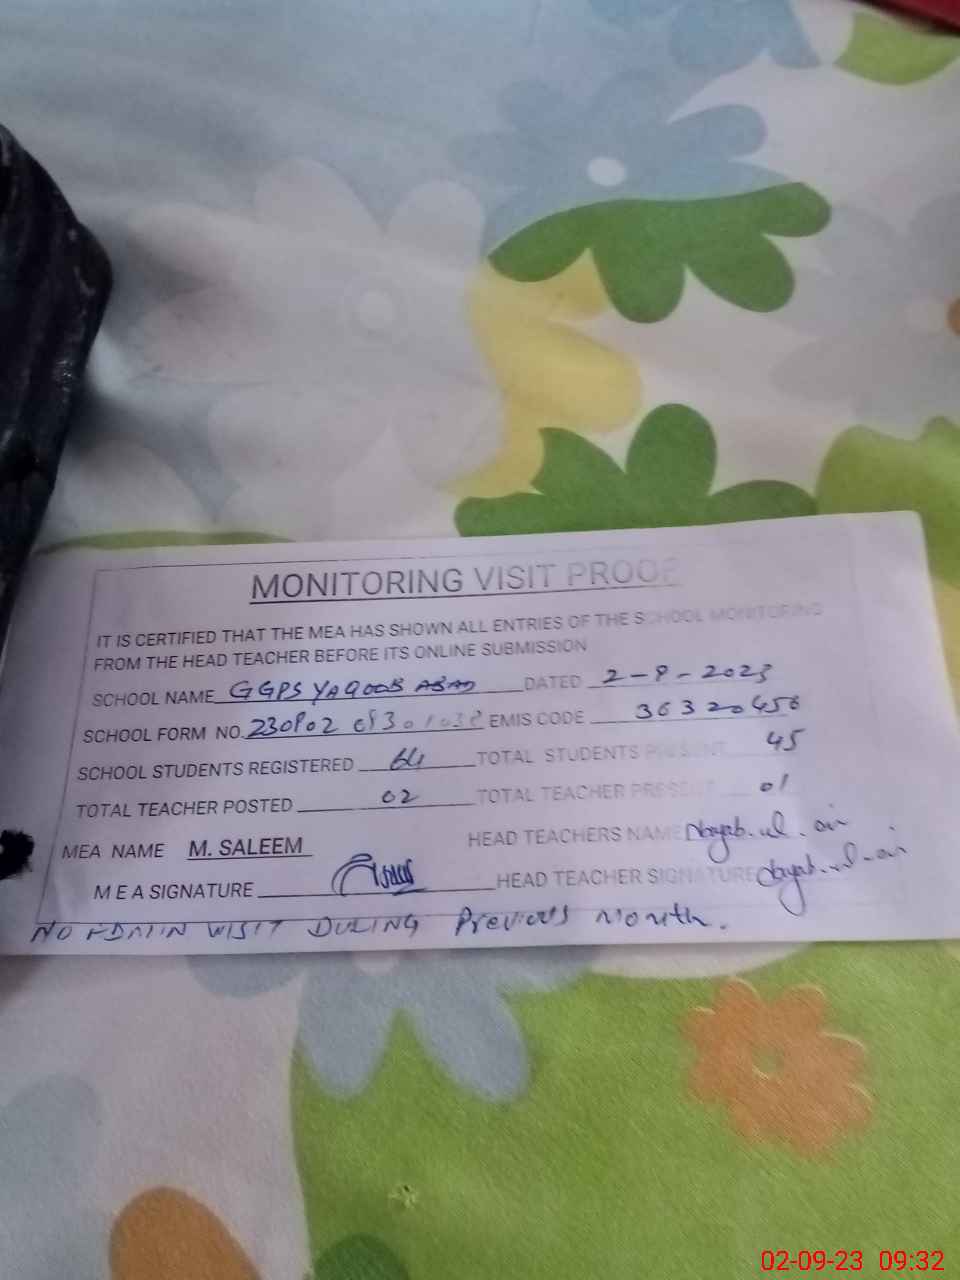 MONITORING VISIT PROOF
IT IS CERTIFIED THAT THE MEA HAS SHOWN ALL ENTRIES OF THE SCHOOL MONITORING
FROM THE HEAD TEACHER BEFORE ITS ONLINE SUBMISSION
SCHOOL NAME GGPS YAQOOB ABAD DATED 2-9-2023
SCHOOL FORM NO. EMIS CODE 36320456
SCHOOL STUDENTS REGISTERED 64 TOTAL STUDENTS PRESENT 45
TOTAL TEACHER POSTED 02 TOTAL TEACHER PRESENT 01
MEA NAME M. SALEEM HEAD TEACHERS NAME Nayab.ul.ain
M E A SIGNATURE HEAD TEACHER SIGNATURE Nayab.ul.ain
NO ADMIN VISIT DURING Previous Month.
02-09-23 09:32